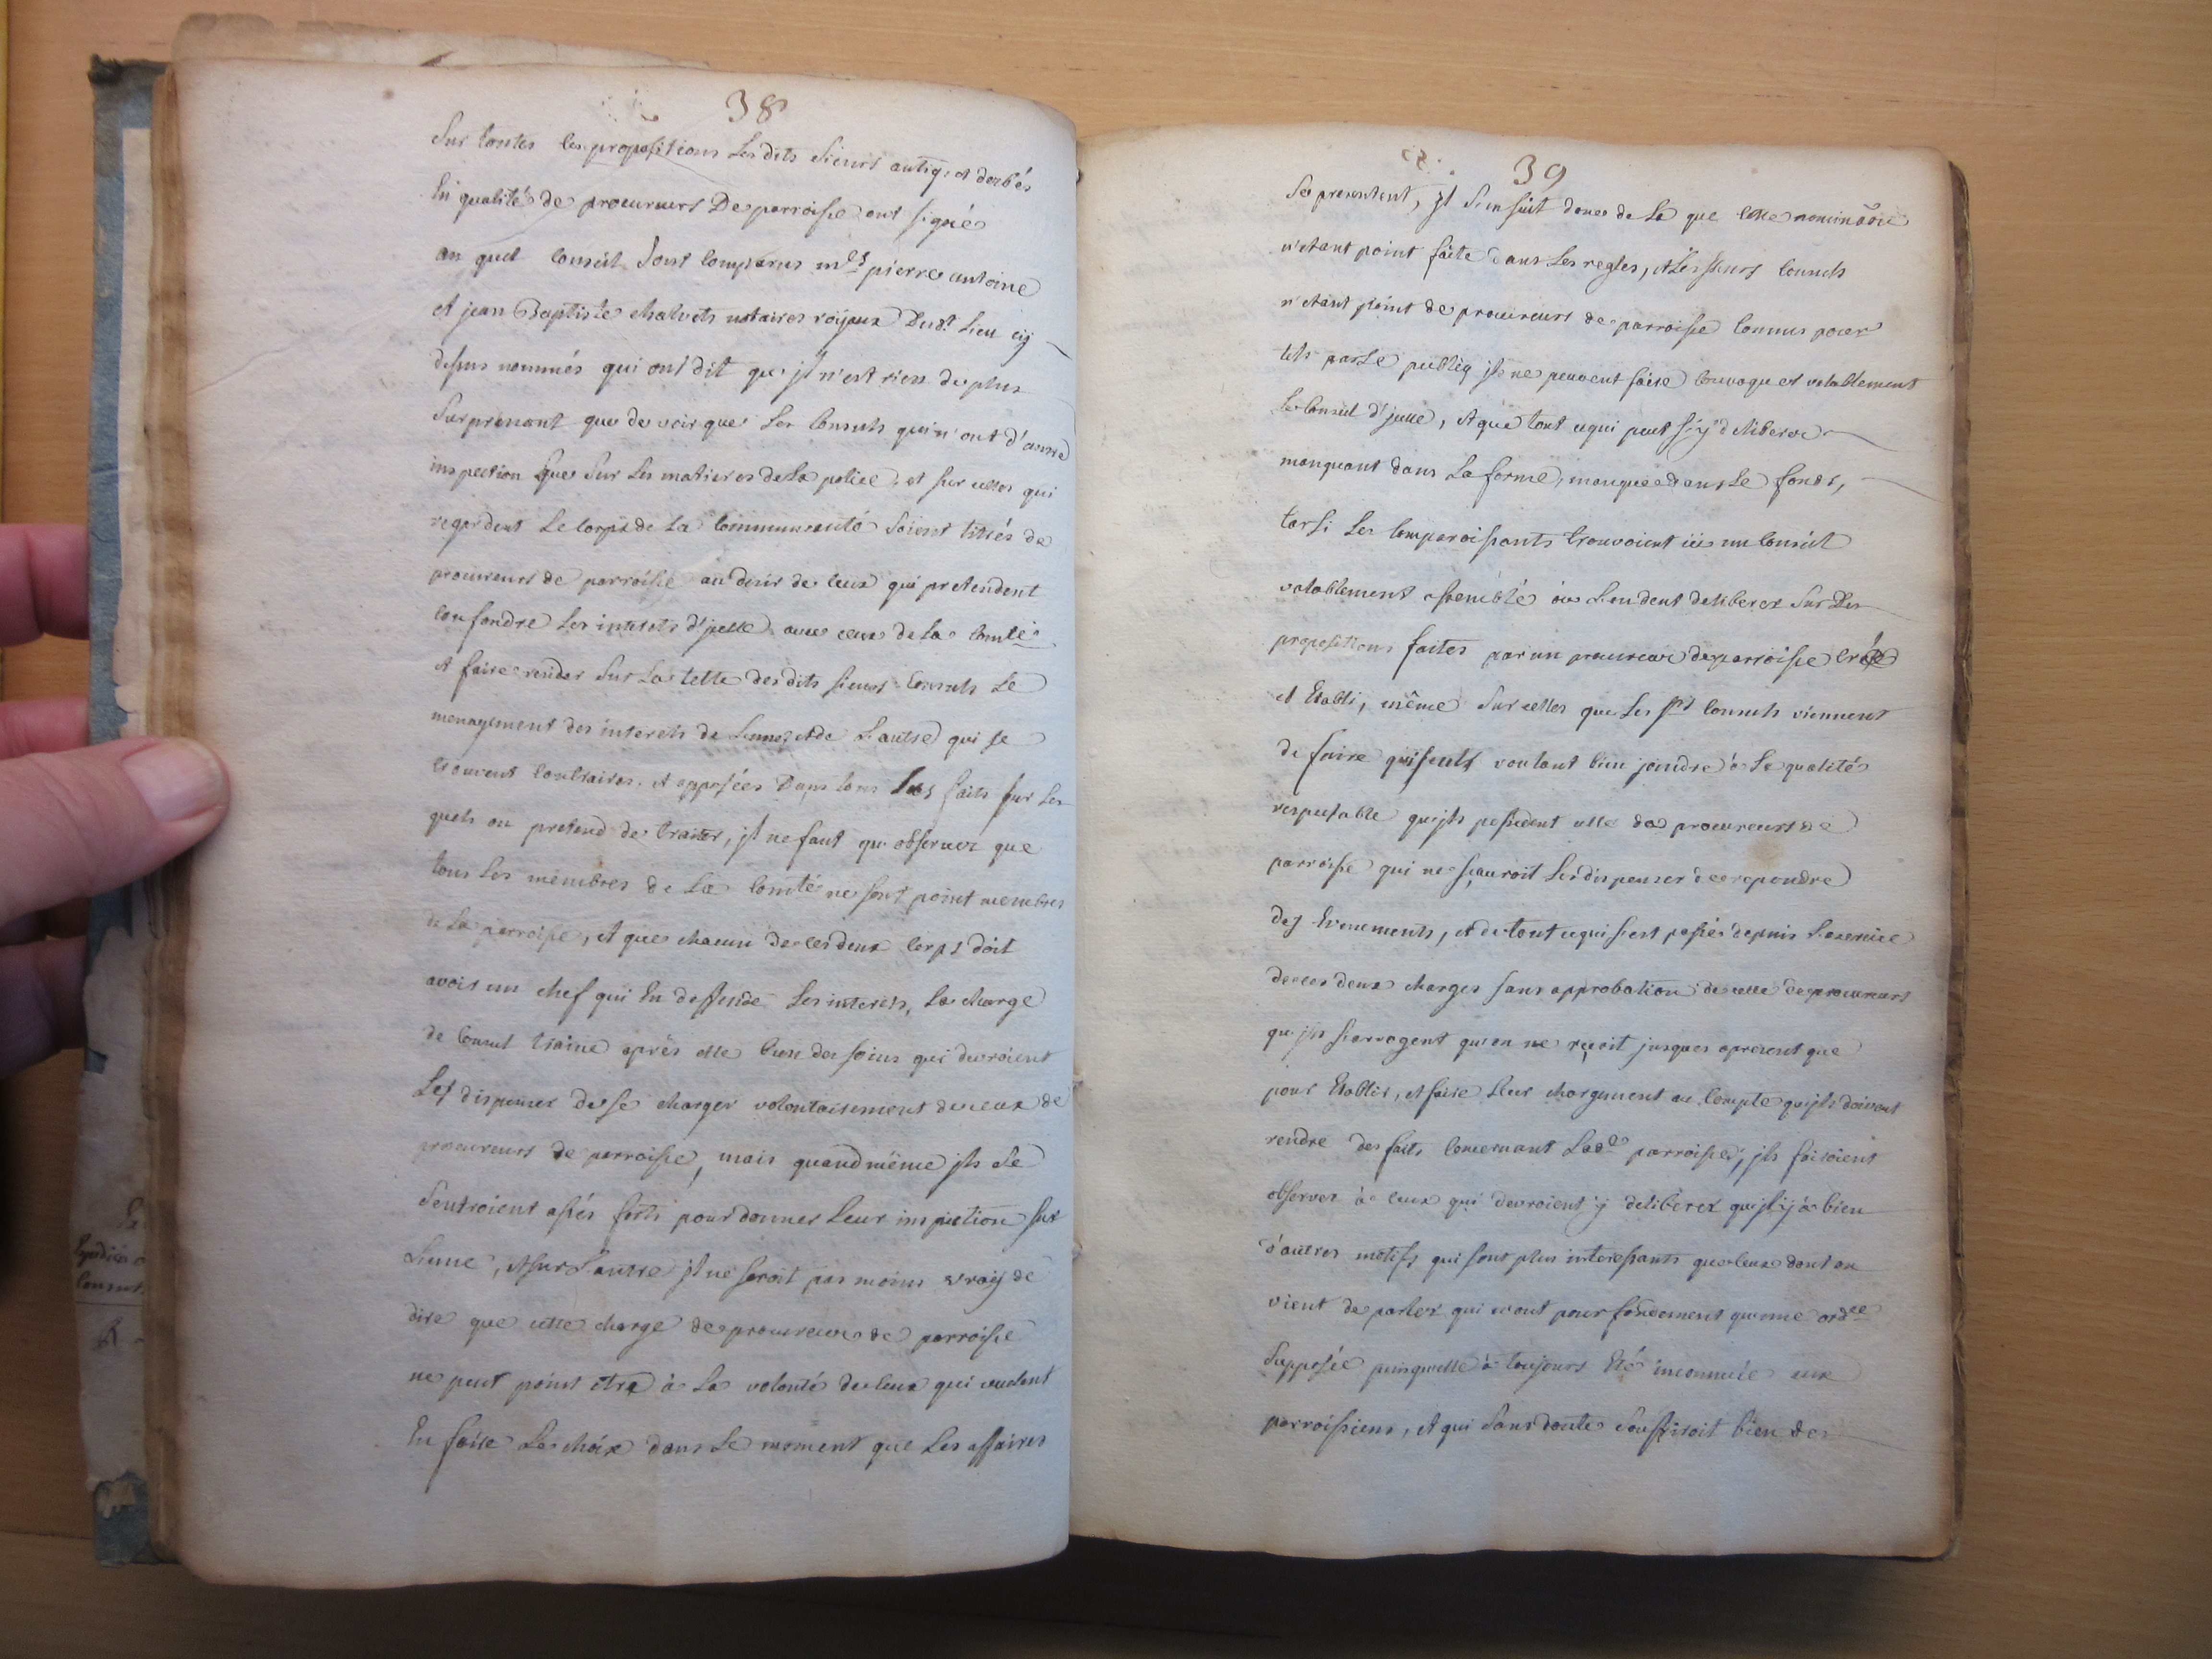 38
Sur toutes les propositions Les dits sieurs antiq: et derbés
En qualité de procureurs De parroisse ont signé
au quel conseil sont comparus mes pierre antoine
et jean Baptiste chalvets notaires roÿaux Dudt Lieu cÿ
dessus nommés qui ont dit qu'jl n'est rien de plus
surprenant que de voir que Les Consuls qui n'ont d'autre
inspection que sur Les matieres de La police, et sur celles qui
regardent Le corps de La Communeauté soient titrés de
procureurs de parroisse au desir de ceux qui pretendent
confondre Les interets d'jcelle avec ceux de La comté
et faire rouler sur La tette des dits sieurs Consuls Le
menagement des interets de L'une, et de L'autre qui se
trouvent contraires, et opposées Dans tous les faits sur Les
quels on pretend de traiter, jl ne faut qu'observer que
tous Les membres de La comté ne sont point membres
de La parroisse, et que chacun de ces deux corps doit
avoir un chef qui En deffende Les interets, La charge
de Consul traine après elle bien des soins qui devroient
Les dispenser de se charger volontairement de ceux de
procureurs de parroisse, mais quand même jls se
sentiroient assés forts pour donner Leur inspection sur
L'une, et sur L'autre jl ne seroit pas moins vraÿ de
dire que cette charge de procureur de parroisse
ne peut point etre à La volonté de ceux qui veulent
En faire Le choix dans Le moment que Les affaires
39
se presentent, jl s'en suit donc de La que cette nominaõn
n'etant point faite dans Les regles, et Les sieurs Consuls
n'etant point de procureurs de parroisse connus pour
tels par Le publiq jls ne peuvent faire convoquer valablement
Le Conseil d'jcelle, et que tout ce qui peut s'ÿ deliberer
manquant dans La forme, manque dans Le fonds,
car si Les comparoissants trouvoient ici un Conseil
valablement assemblé où L'on dent deliberer sur Les
propositions faites par un procureur de parroisse créé
et Etabli, même sur celles que Les srs Consuls viennent
de faire qui seuls voulant bien joindre à La qualité
respectable qu'jls possedent celle de procureurs de
parroisse qui ne sçauroit Les dispenser de repondre
des Evenements, et de tout ce qui s'est passé depuis L'exercice
de ces deux charges sans approbation de celle de procureurs
qu'jls s'arrogent qu'on ne reçoit jusques apresent que
pour Etablir, et faire Leur chargement au compte qu'jls doivent
rendre des faits concernant Lade parroisse, jls faisoient
observer à ceux qui devroient ÿ deliberer qu'jl ÿ à bien
d'autres motifs qui sont plus interessants que ceux dont on
vient de parler qui n'ont pour fondement qu'une ordce
supposée puisqu'elle à toujours Eté inconnuée aux
parroissiens, et qui sans doute souffriroit bien des
Consuls